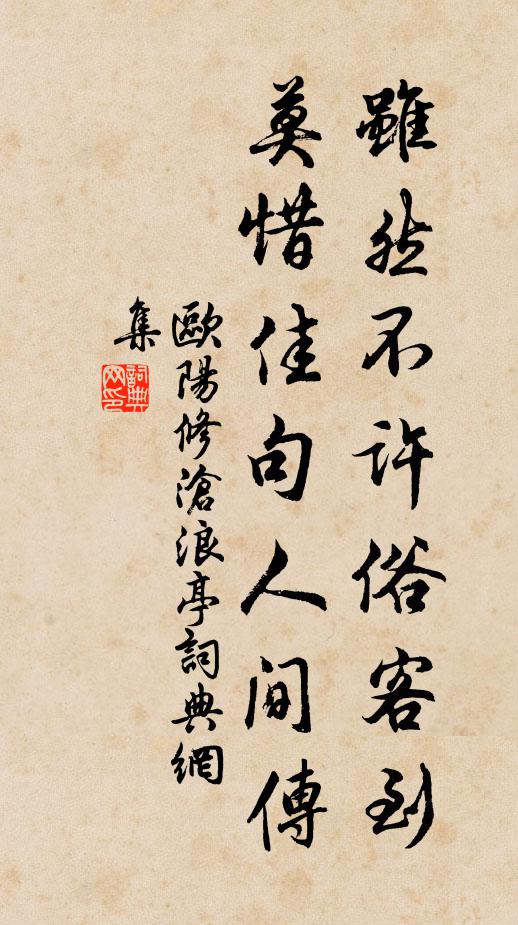 雖然不許俗客到
莫惜佳句人間傳
歐陽修滄浪亭詞典網
集
詞典
网印